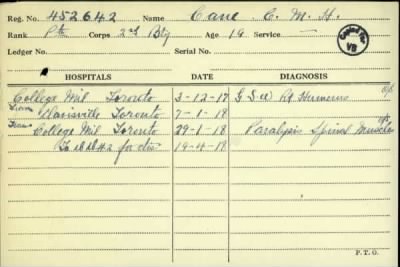 Reg. No. 452642 Name Cane C. M. H.
Rank Pte Corps 2nd Bty Age 19 Service —
Ledger No. Serial No.
HOSPITALS DATE DIAGNOSIS
College Mil Toronto 3-12-17 G S W Rt Humerus
Trans Toronto 7-1-18
Trans College Mil Toronto 29-1-18 Paralysis Spinal Muscles
To D D #2 for dis 19-4-18
P.T.O.